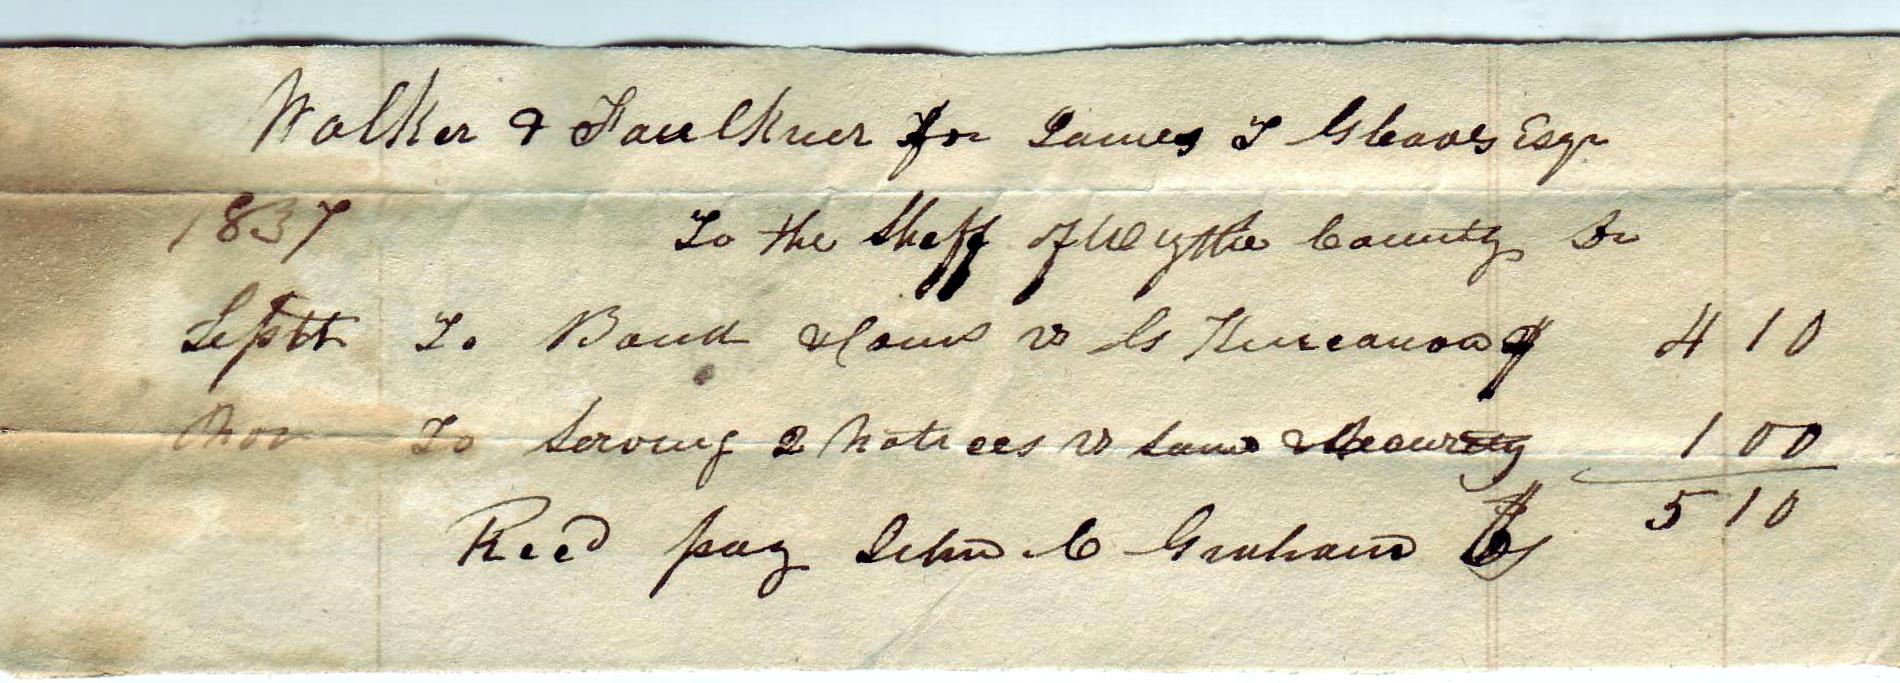 Walker & Faulkner for James T Gleaves Esqr
1837 To the Shff of Wythe County Dr
Septr To Bond & Com vs G $ 4 10
Nov To Serving 2 Notices vs same & Security 1 00
Recd pay John C Graham $ 5 10